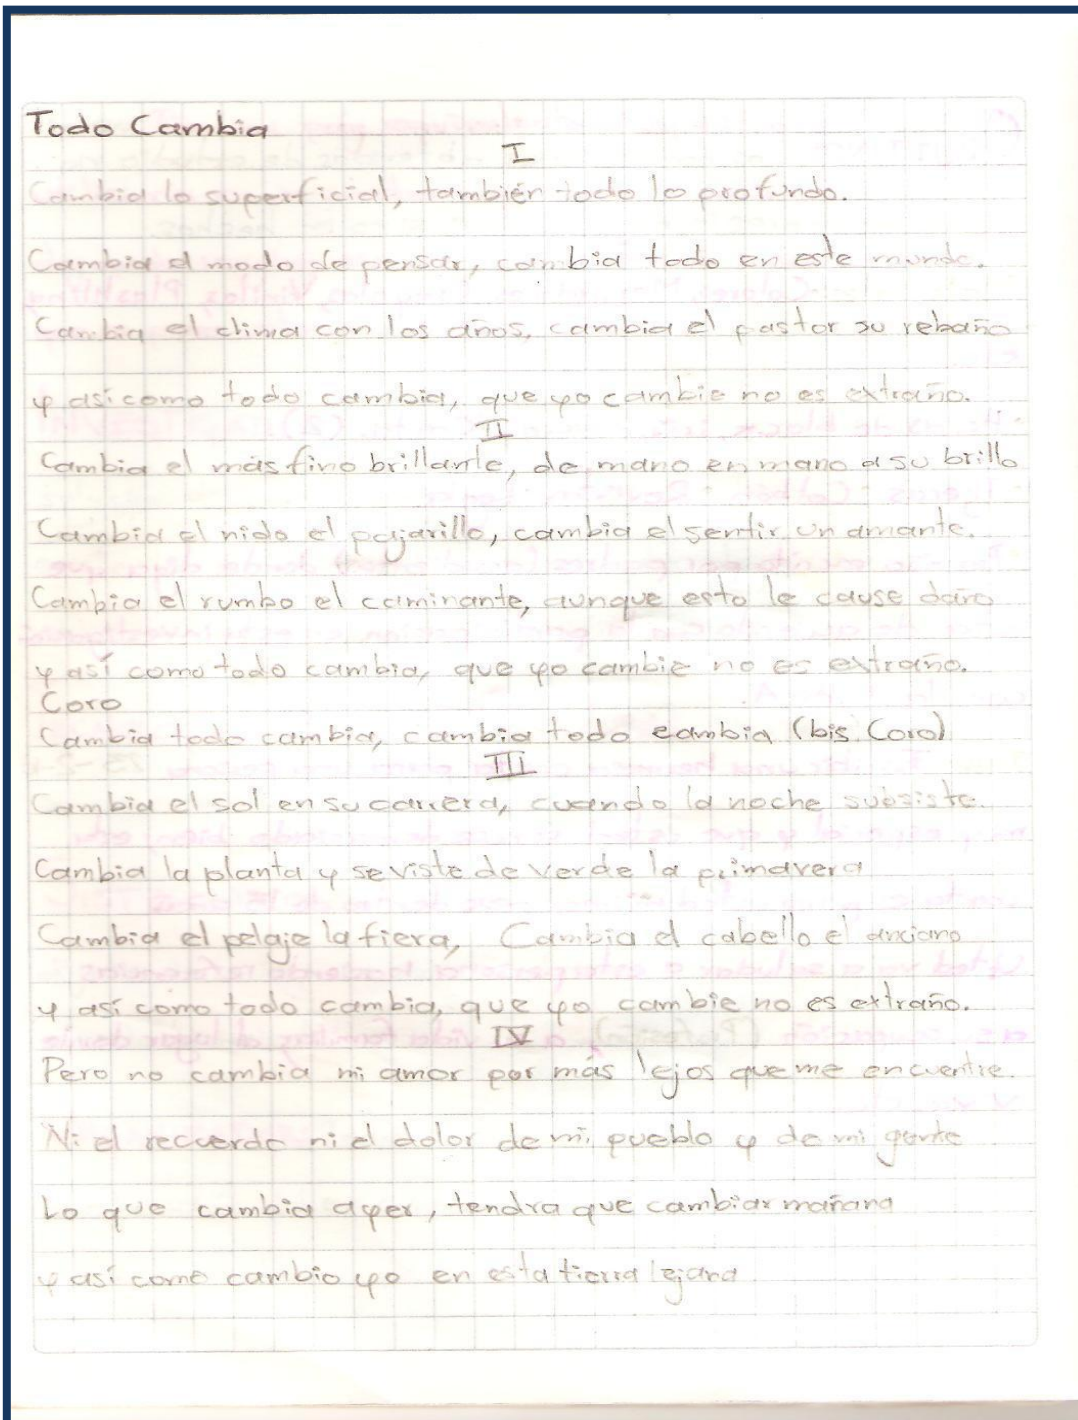 Todo Cambia
I
Cambia lo superficial, también todo lo profundo.
Cambia el modo de pensar, cambia todo en este mundo.
Cambia el clima con los años, cambia el pastor su rebaño
y así como todo cambia, que yo cambie no es extraño.
II
Cambia el más fino brillante, de mano en mano a su brillo
Cambia el nido el pajarillo, cambia el sentir un amante.
Cambia el rumbo el caminante, aunque esto le cause daño
y así como todo cambia, que yo cambie no es extraño.
Coro
Cambia todo cambia, cambia todo cambia (bis Coro)
III
Cambia el sol en su carrera, cuando la noche subsiste.
Cambia la planta y se viste de verde la primavera
Cambia el pelaje la fiera, Cambia el cabello el anciano
y así como todo cambia, que yo cambie no es extraño.
IV
Pero no cambia mi amor por más lejos que me encuentre.
Ni el recuerdo ni el dolor de mi pueblo y de mi gente
Lo que cambia ayer, tendra que cambiar mañana
y así como cambio yo en esta tierra lejana